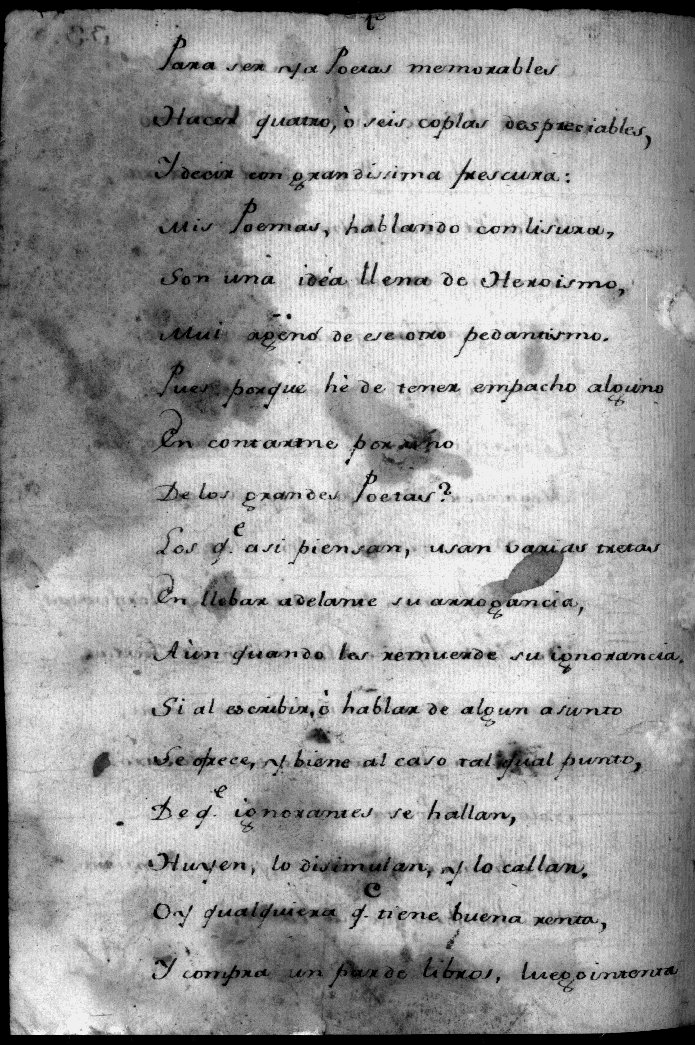 Para ser ya Poetas memorables
Hacen quatro, ò seis coplas despreciables,
Y decir con grandissima frescura:
Mis Poemas, hablando con lisura,
Son una idéa llena de Heroismo,
Mui ageno de ese otro pedantismo.
Pues porque hè de tener empacho alguno
En contarme por uno
De los grandes Poetas?
Los q.e asi piensan, usan varias tretas
En llebar adelante su arrogancia,
Aùn quando les remuerde su ignorancia.
Si al escribir, ò hablar de algun asunto
Se ofrece, y biene al caso tal qual punto,
De q.e ignorantes se hallan,
Huyen, lo disimulan, y lo callan.
Oy qualquiera q.e tiene buena renta,
Y compra un par de libros, luego intenta